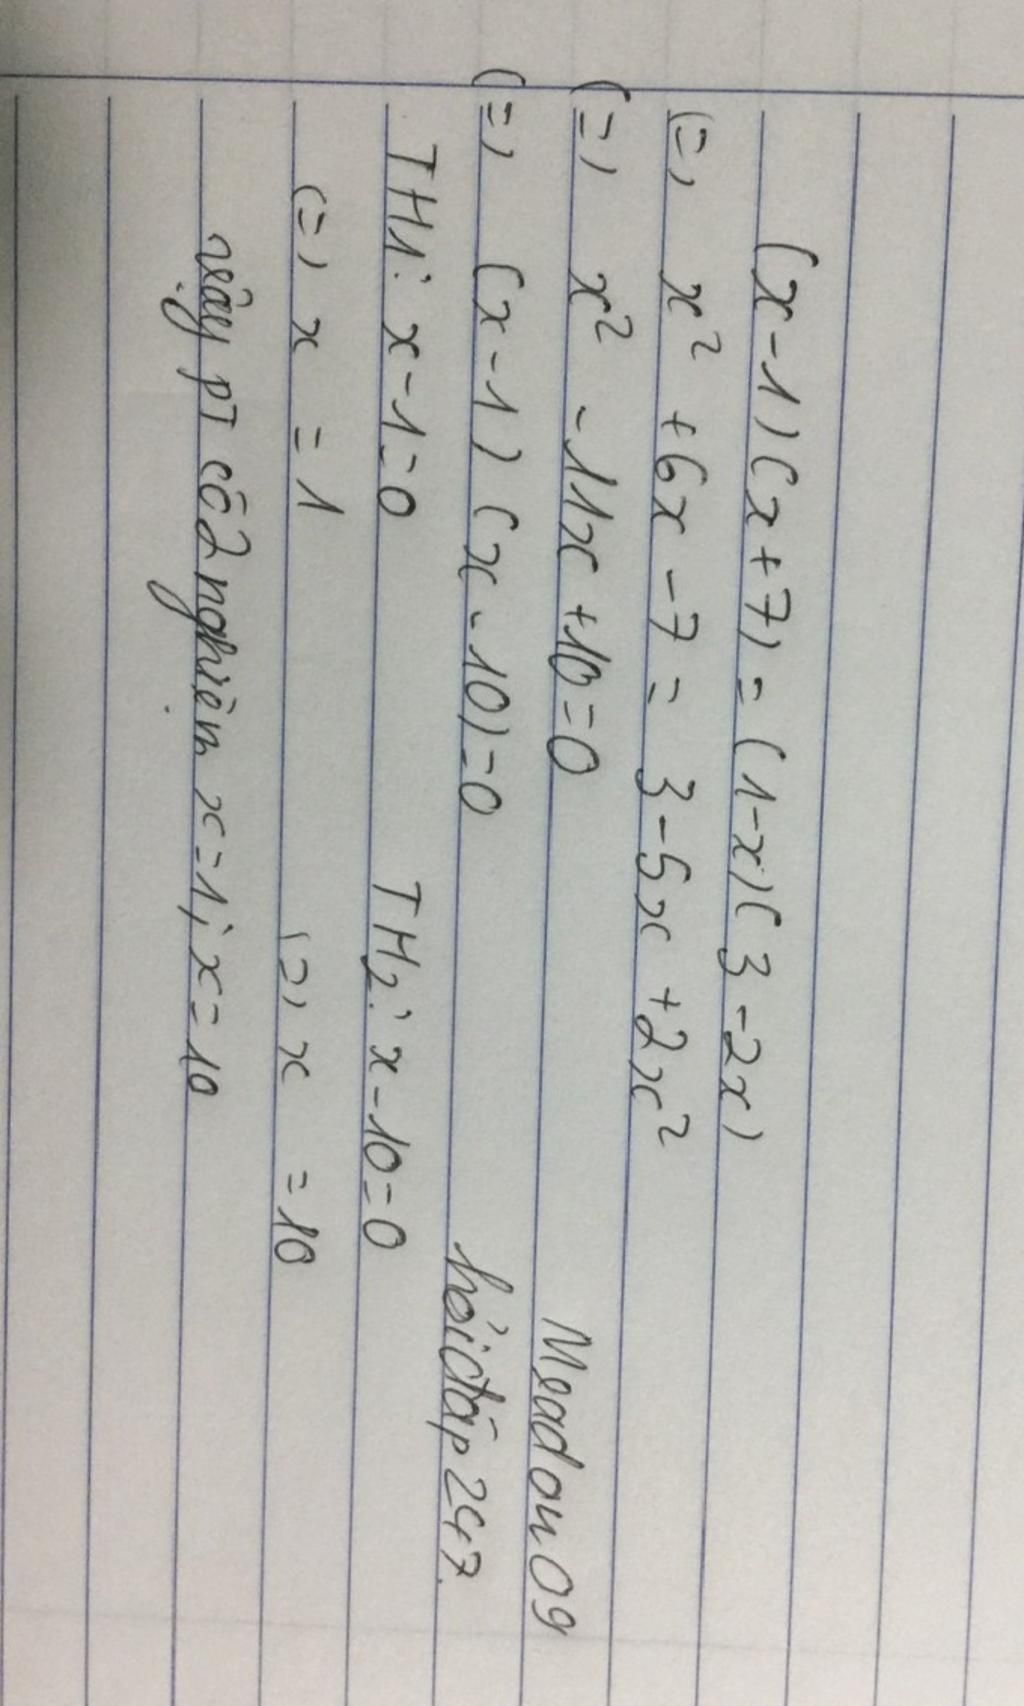 (x-1)(x+7) = (1-x)(3-2x)
(=) x² +6x -7 = 3-5x +2x²
(=) x² -11x +10=0
(=) (x-1) (x-10)=0
TH1: x-1=0 TH2: x-10=0
(=) x =1 (=) x =10
vậy pT có 2 nghiệm x=1; x=10
Meadow09
hỏiđáp247.